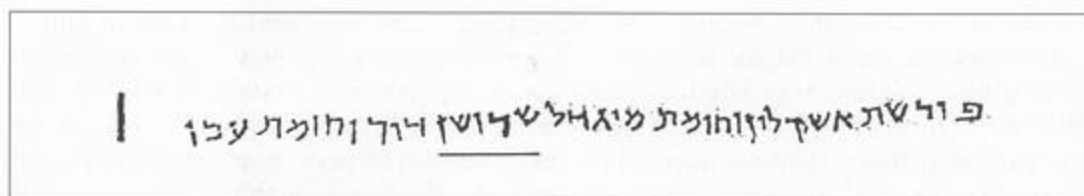 פורשת אשקלון וחומת מיגדל שרושן ודור וחומת עכו